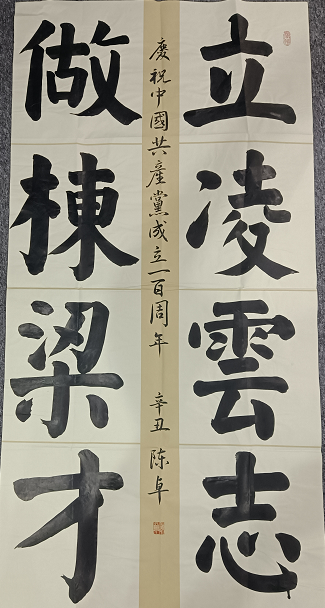 立凌雲志
做棟梁才
慶祝中國共產黨成立一百周年
辛丑 陈卓